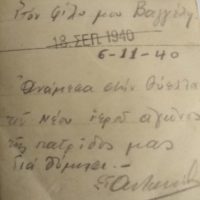 Στον φίλο μου Βαγγέλη
18 ΣΕΠ 1940
6-11-40
Ανάμεσα στην θύελλα
του Νέου ιερού αγώνος
της πατρίδος μας
διά θύμησι.—